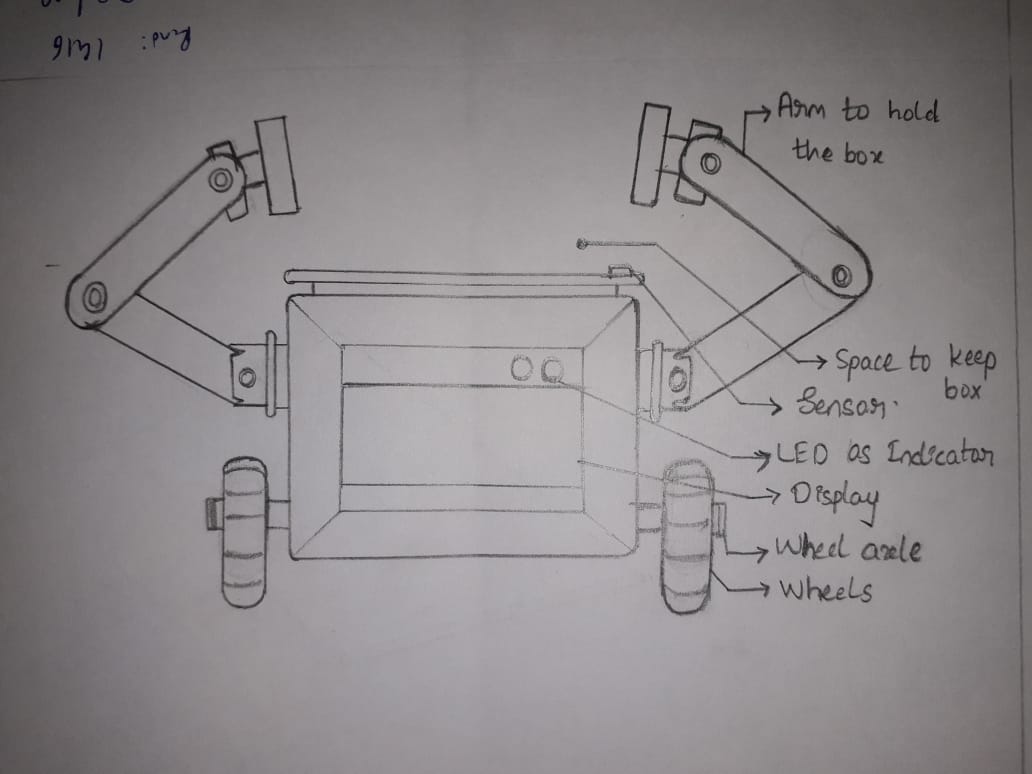 Arm to hold
the box
Space to keep
box
Sensor.
LED as Indicator
Display
Wheel axle
Wheels